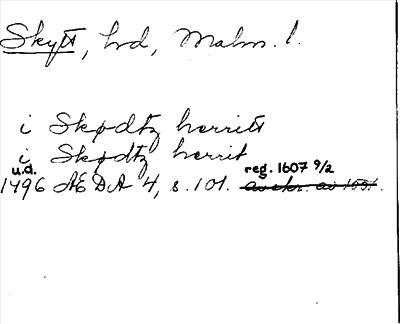 Skytt, hd, Malm. l.
i Skødtz herritt
i Skødtz herrit
u.d. reg. 1607 9/2
1496 ÆDA 4, s. 101. avskr. av 1651.